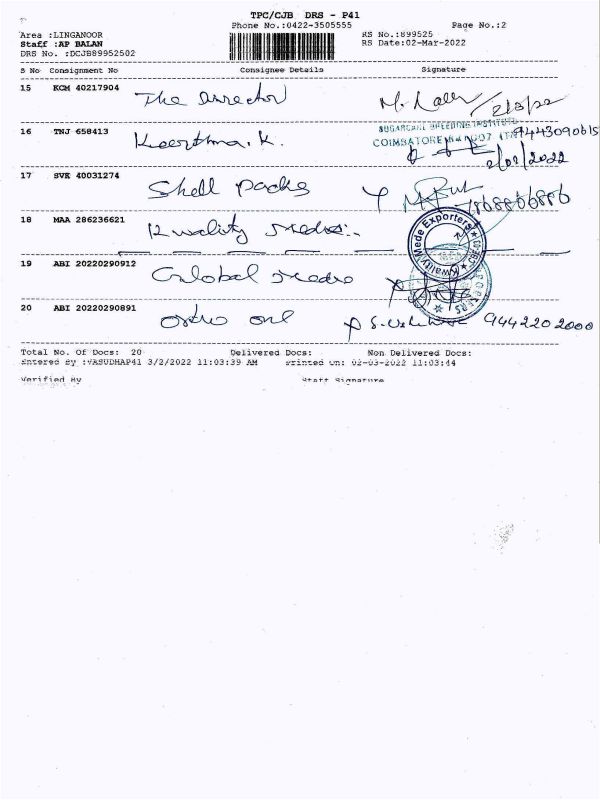 TPC/CJB DRS - P41
Phone No.:0422-3505555 Page No.:2
Area :LINGANOOR RS No.:899525
Staff :AP BALAN RS Date:02-Mar-2022
DRS No. :DCJB89952502
S No Consignment No Consignee Details Signature
15 KCM 40217904 The Director
16 TNJ 658413 Keerthna. K.
SUGARCANE BREEDING INSTITUTE
COIMBATORE 9443090615
2/02/2022
17 SVE 40031274 Shell packs 7868866886
18 MAA 286236621 Kwality Medes:-
Kwality Mede Exporters
19 ABI 20220290912 Global Medro
20 ABI 20220290891 Ortho one 944220 2000
Total No. Of Docs: 20 Delivered Docs: Non Delivered Docs:
Entered By :VASUDHAP41 3/2/2022 11:03:39 AM Printed On: 02-03-2022 11:03:44
Verified By Staff Signature